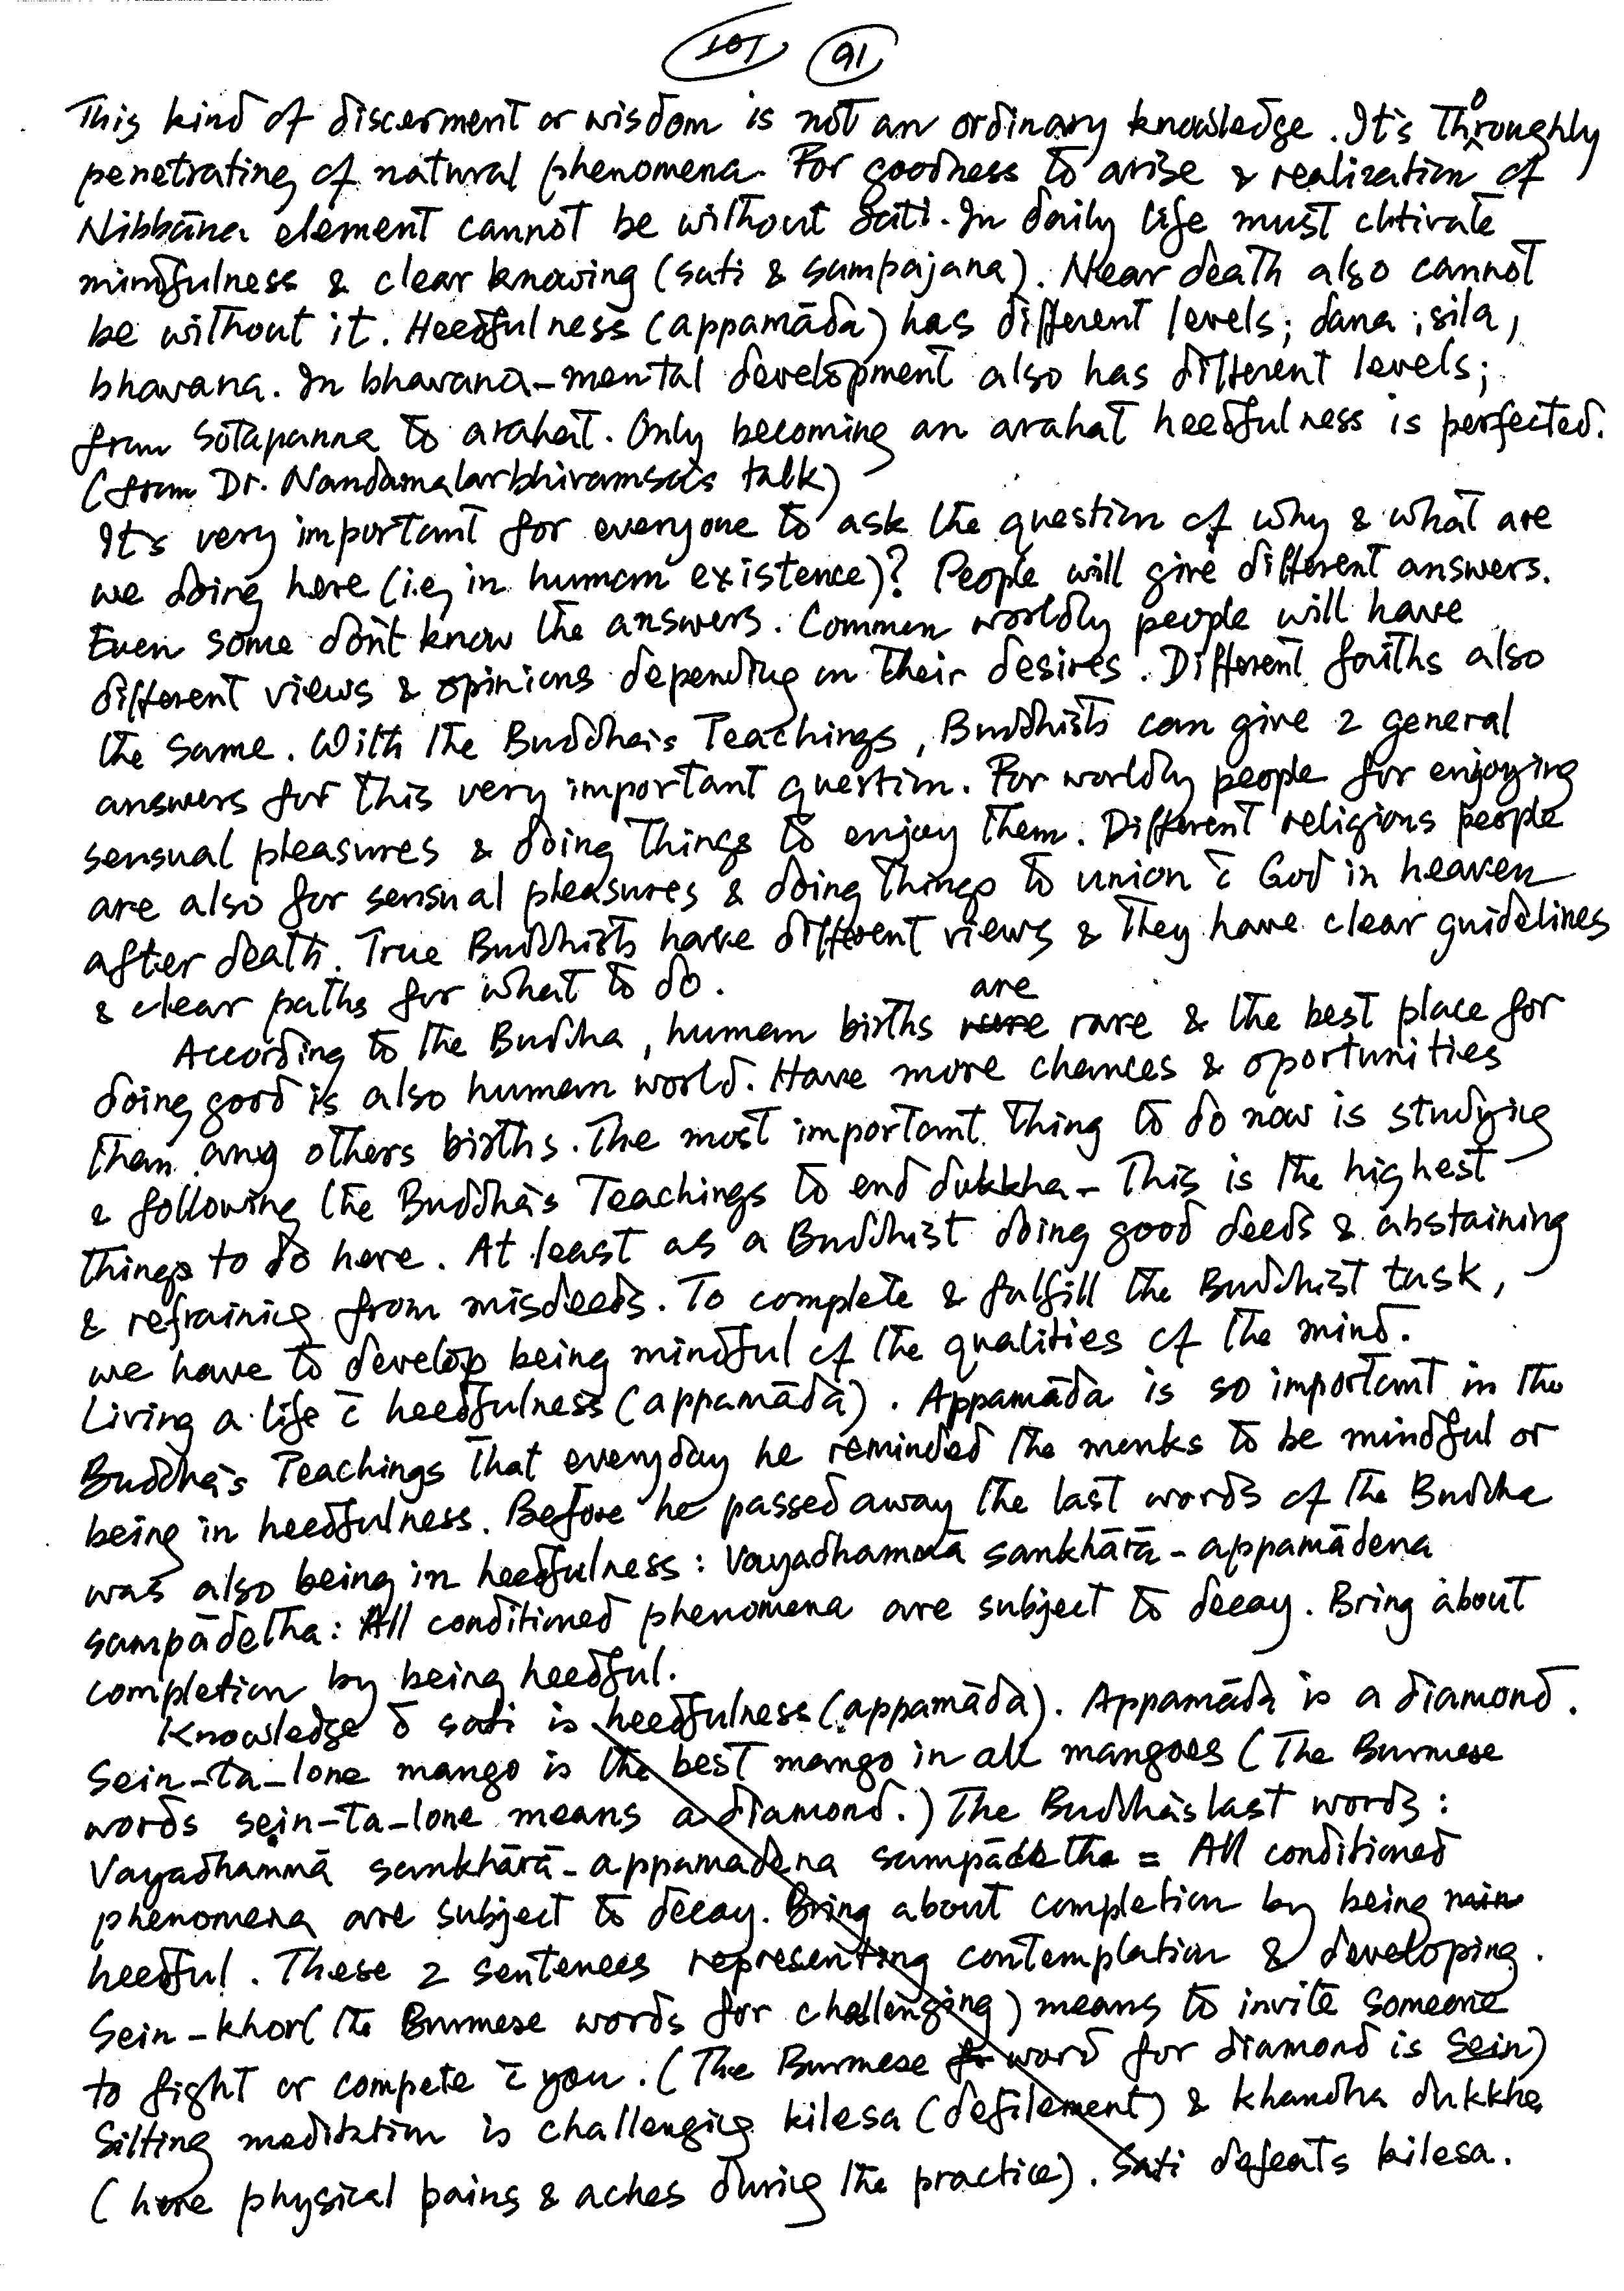 101 91
This kind of discernment or wisdom is not an ordinary knowledge. It's thoroughly
penetrating of natural phenomena. For goodness to arise & realization of
Nibbāna element cannot be without sati. In daily life must cltivate
mindfulness & clear knowing (sati & sampajana). Near death also cannot
be without it. Heedfulness (appamāda) has different levels; dana ; sila,
bhavana. In bhavana-mental development also has different levels;
from sotapanna to arahat. Only becoming an arahat heedfulness is perfected.
(from Dr. Nandamalarbhivamsa's talk)
It's very important for everyone to ask the question of why & what are
we doing here (i.e, in human existence)? People will give different answers.
Even some don't know the answers. Common worldly people will have
different views & opinions depending on their desires. Different faiths also
the same. With the Buddha's Teachings, Buddhists can give 2 general
answers for this very important question. For worldly people for enjoying
sensual pleasures & doing things to enjoy them. Different religions people
are also for sensual pleasures & doing things to union c̄ God in heaven
after death. True Buddhists have different views & they have clear guidelines
& clear paths for what to do.
According to the Buddha, human births are rare & the best place for
doing good is also human world. Have more chances & oportunities
than any others births. The most important thing to do now is studying
& following the Buddha's Teachings to end dukkha - This is the highest
things to do here. At least as a Buddhist doing good deeds & abstaining
& refraining from misdeeds. To complete & fulfill the Buddhist task,
we have to develop being mindful of the qualities of the mind.
Living a life c̄ heedfulness (appamāda). Appamāda is so important in the
Buddha's Teachings that everyday he reminded the monks to be mindful or
being in heedfulness. Before he passed away the last words of the Buddha
was also being in heedfulness : Vayadhammā sankhārā - appamādena
sampādetha : All conditioned phenomena are subject to decay. Bring about
completion by being heedful.
Knowledge c̄ sati is heedfulness (appamāda). Appamāda is a diamond.
Sein-ta-lone mango is the best mango in all mangoes (The Burmese
words sein-ta-lone means a diamond.) The Buddha's last words :
Vayadhammā sankhārā - appamadena sampādetha = All conditioned
phenomena are subject to decay. Bring about completion by being
heedful. These 2 sentences representing contemplation & developing.
Sein-khor (the Burmese words for challenging) means to invite someone
to fight or compete c̄ you. (The Burmese word for diamond is sein)
Sitting meditation is challenging kilesa (defilement) & khandha dukkha
(here physical pains & aches during the practice). Sati defeats kilesa.